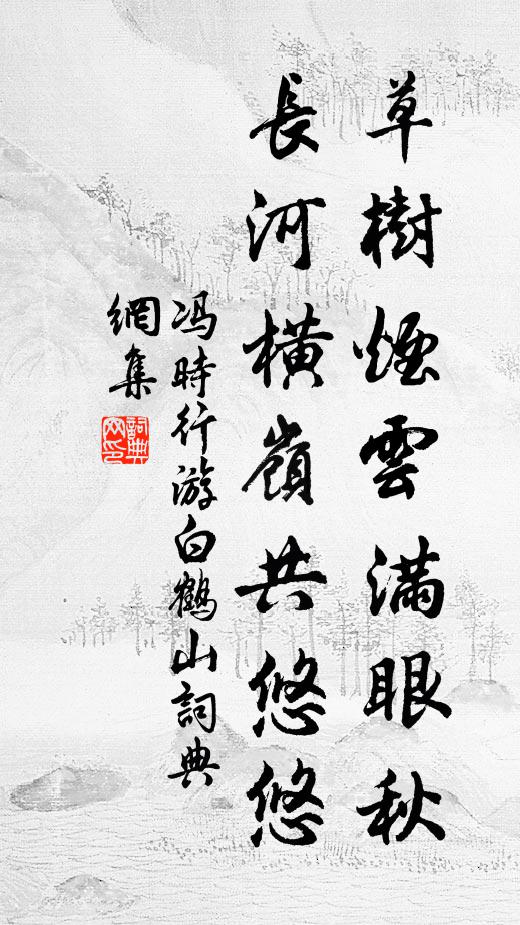 草樹煙雲滿眼秋
長河橫嶺共悠悠
冯時行游白鶴山詞典
網集
詞典网印